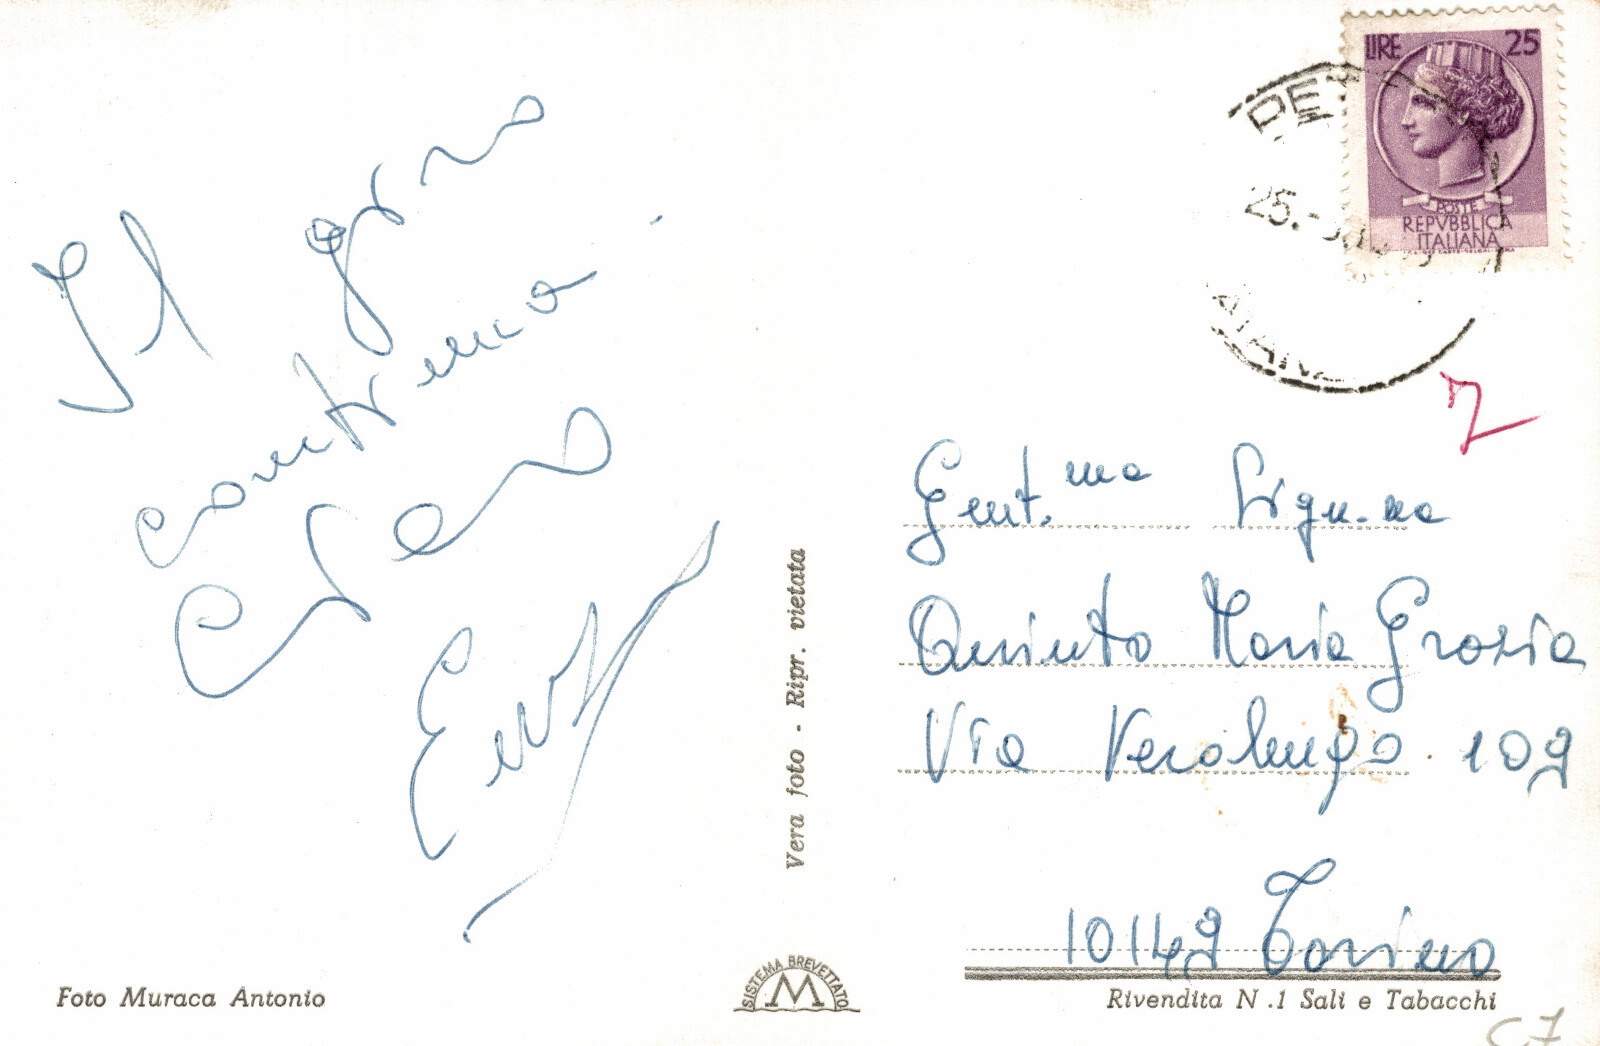 Il giro
continua.
Ciao
Enzo
Gent.ma Sign.na
Quinto Maria Grazia
Via Verolengo 109
10149 Torino
LIRE 25
POSTE
REPVBBLICA
ITALIANA
25.-
Vera foto - Ripr. vietata
Foto Muraca Antonio
SISTEMA BREVETTATO
M
Rivendita N.1 Sali e Tabacchi
C7